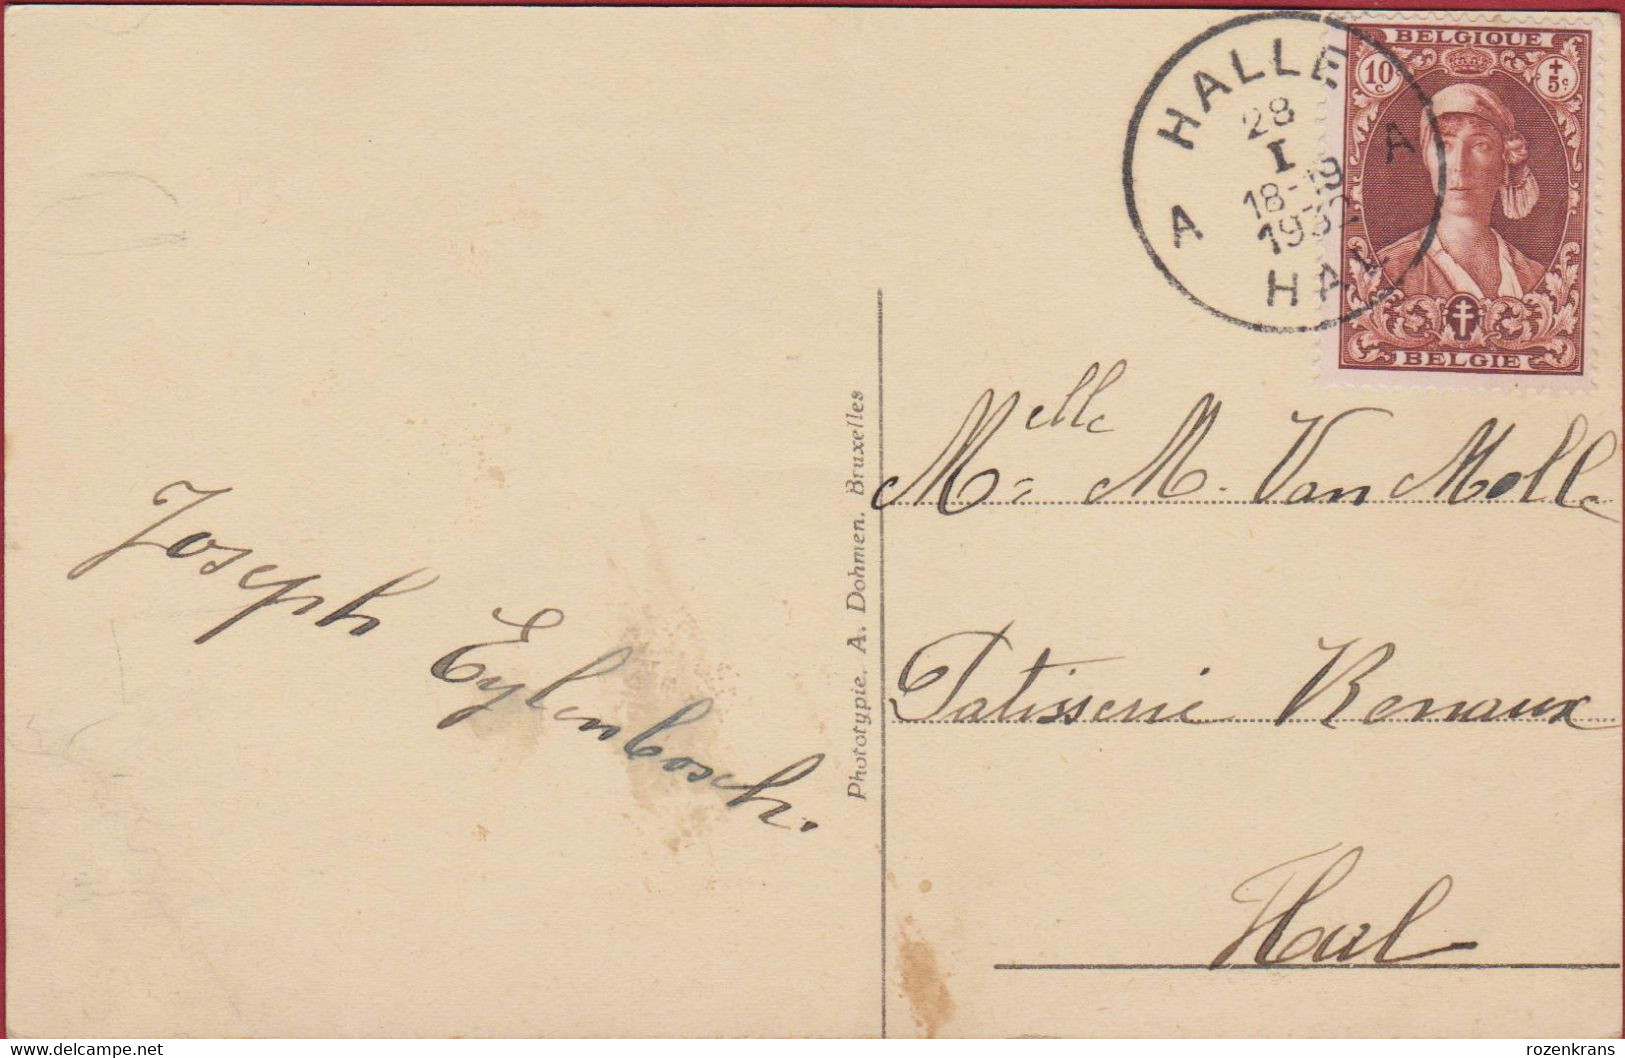 BELGIQUE
10c
+5c
BELGIE
HALLE
28
I
18-19
1932
A A
HAL
Joseph Eylenbosch.
Phototypie. A. Dohmen. Bruxelles
Melle M. Van Molle
Patisserie Renaux
Hal
delcampe.net
rozenkrans